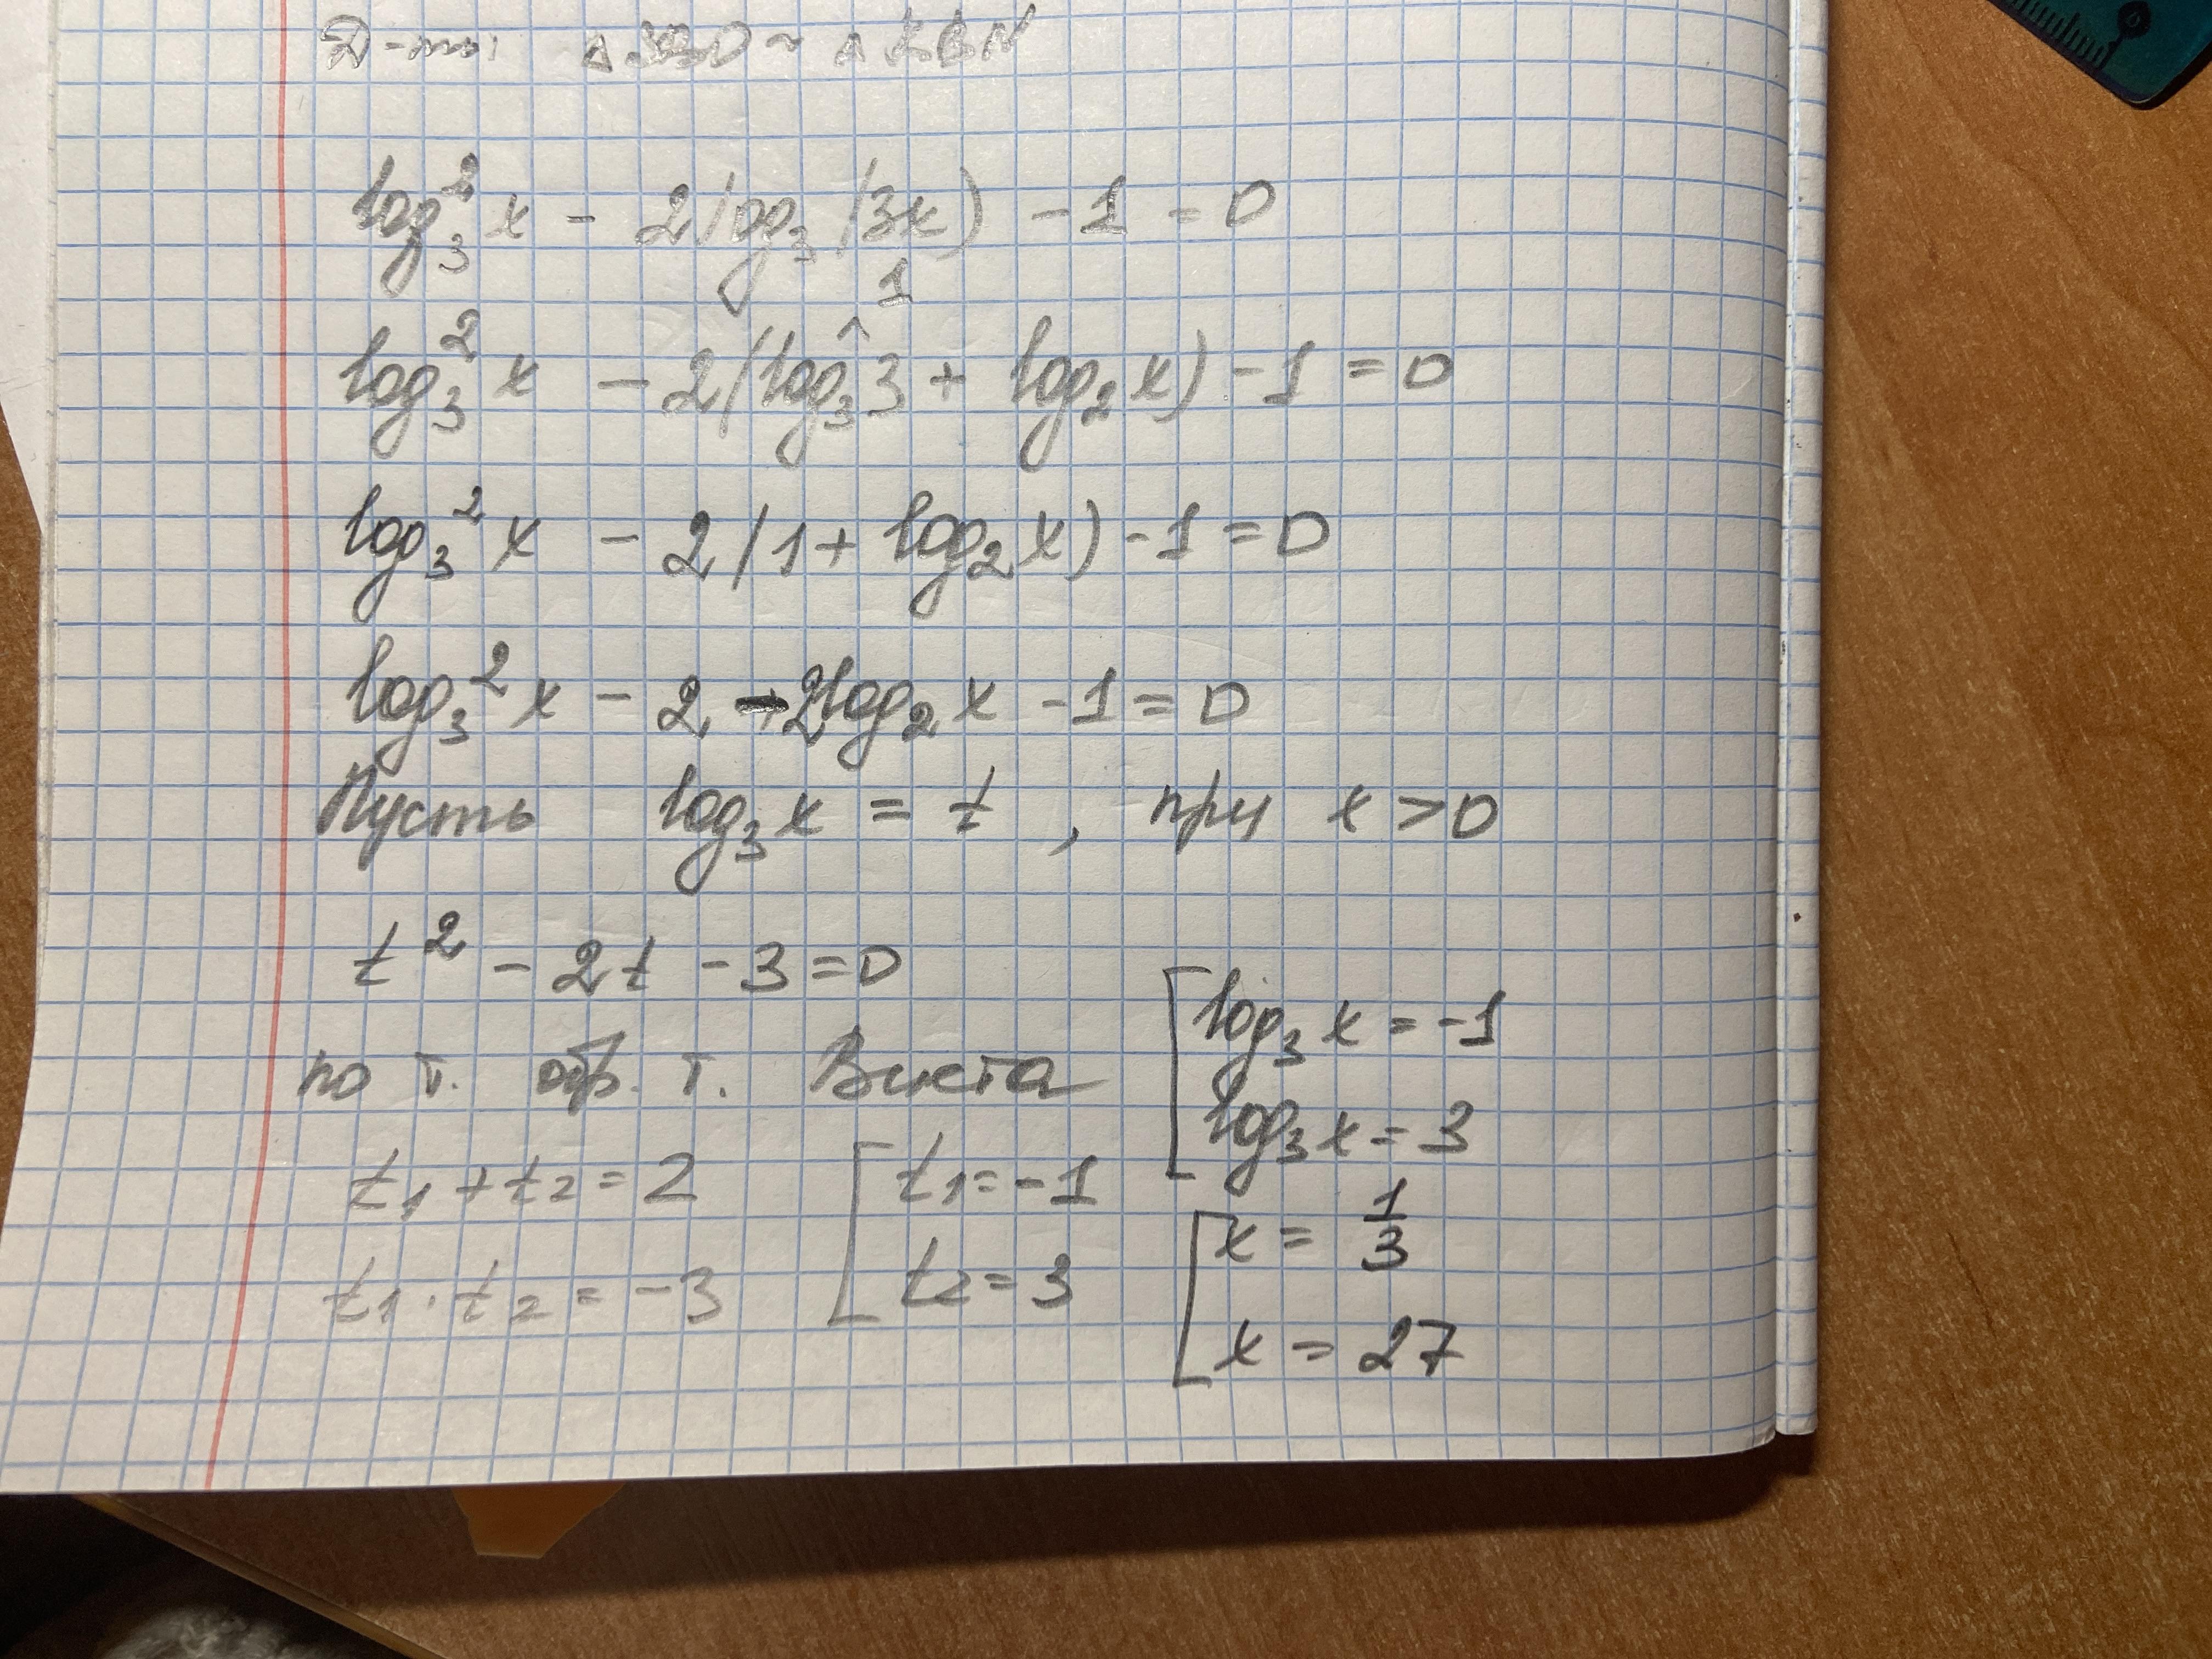 Д-ть: ~ △ KBN
log₃² x - 2log₃(3x) - 1 = 0
1
log₃² x - 2(log₃3 + log₂x) - 1 = 0
log₃² x - 2(1 + log₂x) - 1 = 0
log₃² x - 2 - 2log₂ x - 1 = 0
Пусть log₃x = t, при x > 0
t² - 2t - 3 = 0
по т. обр. т. Виета
t₁ + t₂ = 2
t₁ · t₂ = -3
[ t₁ = -1
t₂ = 3
[ log₃ x = -1
log₃ x = 3
[ x = 1/3
x = 27